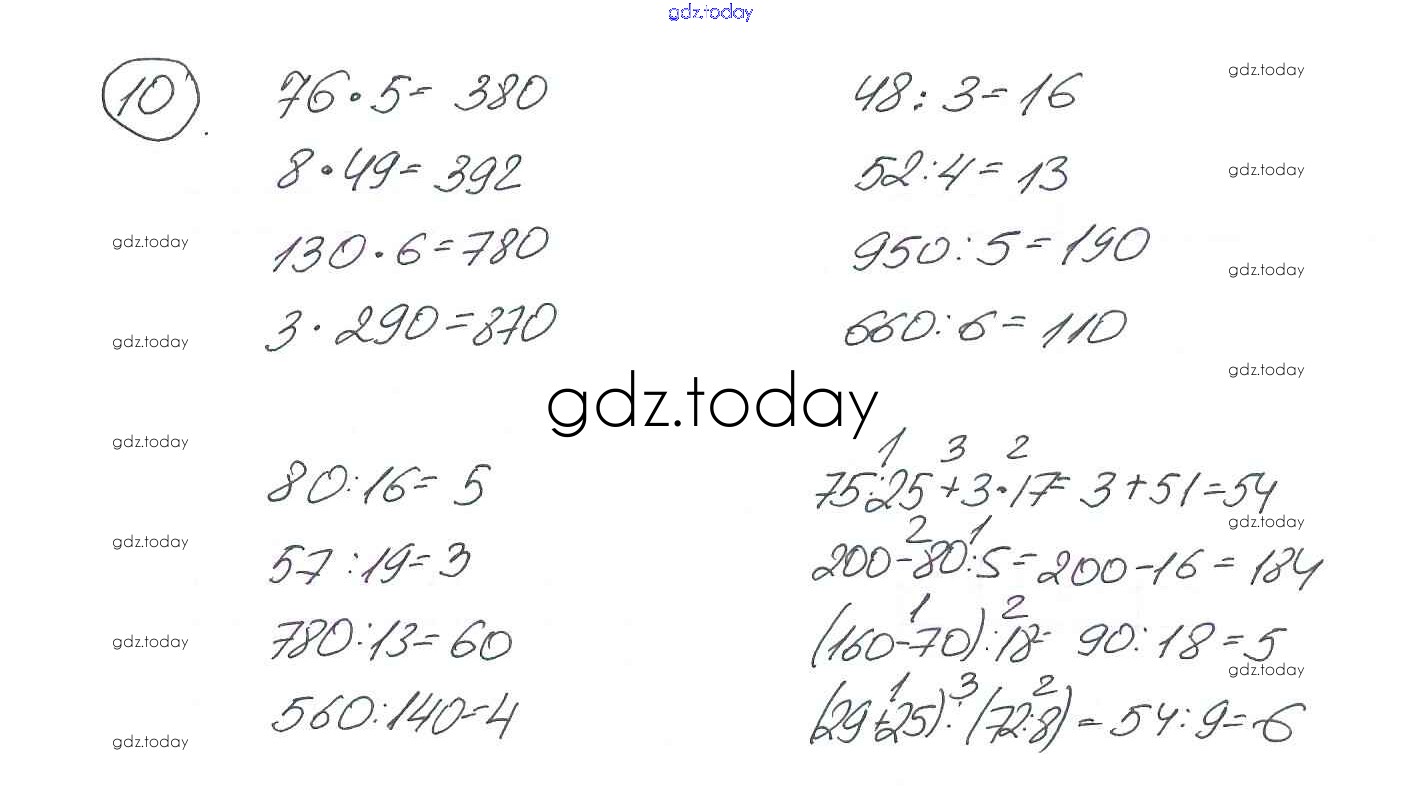 gdz.today
10.
76 · 5 = 380
8 · 49 = 392
130 · 6 = 780
3 · 290 = 870
48 : 3 = 16
52 : 4 = 13
950 : 5 = 190
660 : 6 = 110
gdz.today
gdz.today
gdz.today
gdz.today
gdz.today
gdz.today
gdz.today
80 : 16 = 5
57 : 19 = 3
780 : 13 = 60
560 : 140 = 4
1 3 2
75 : 25 + 3 · 17 = 3 + 51 = 54
2 1
200 - 80 : 5 = 200 - 16 = 184
1 2
(160 - 70) : 18 = 90 : 18 = 5
1 3 2
(29 + 25) : (72 : 8) = 54 : 9 = 6
gdz.today
gdz.today
gdz.today
gdz.today
gdz.today
gdz.today